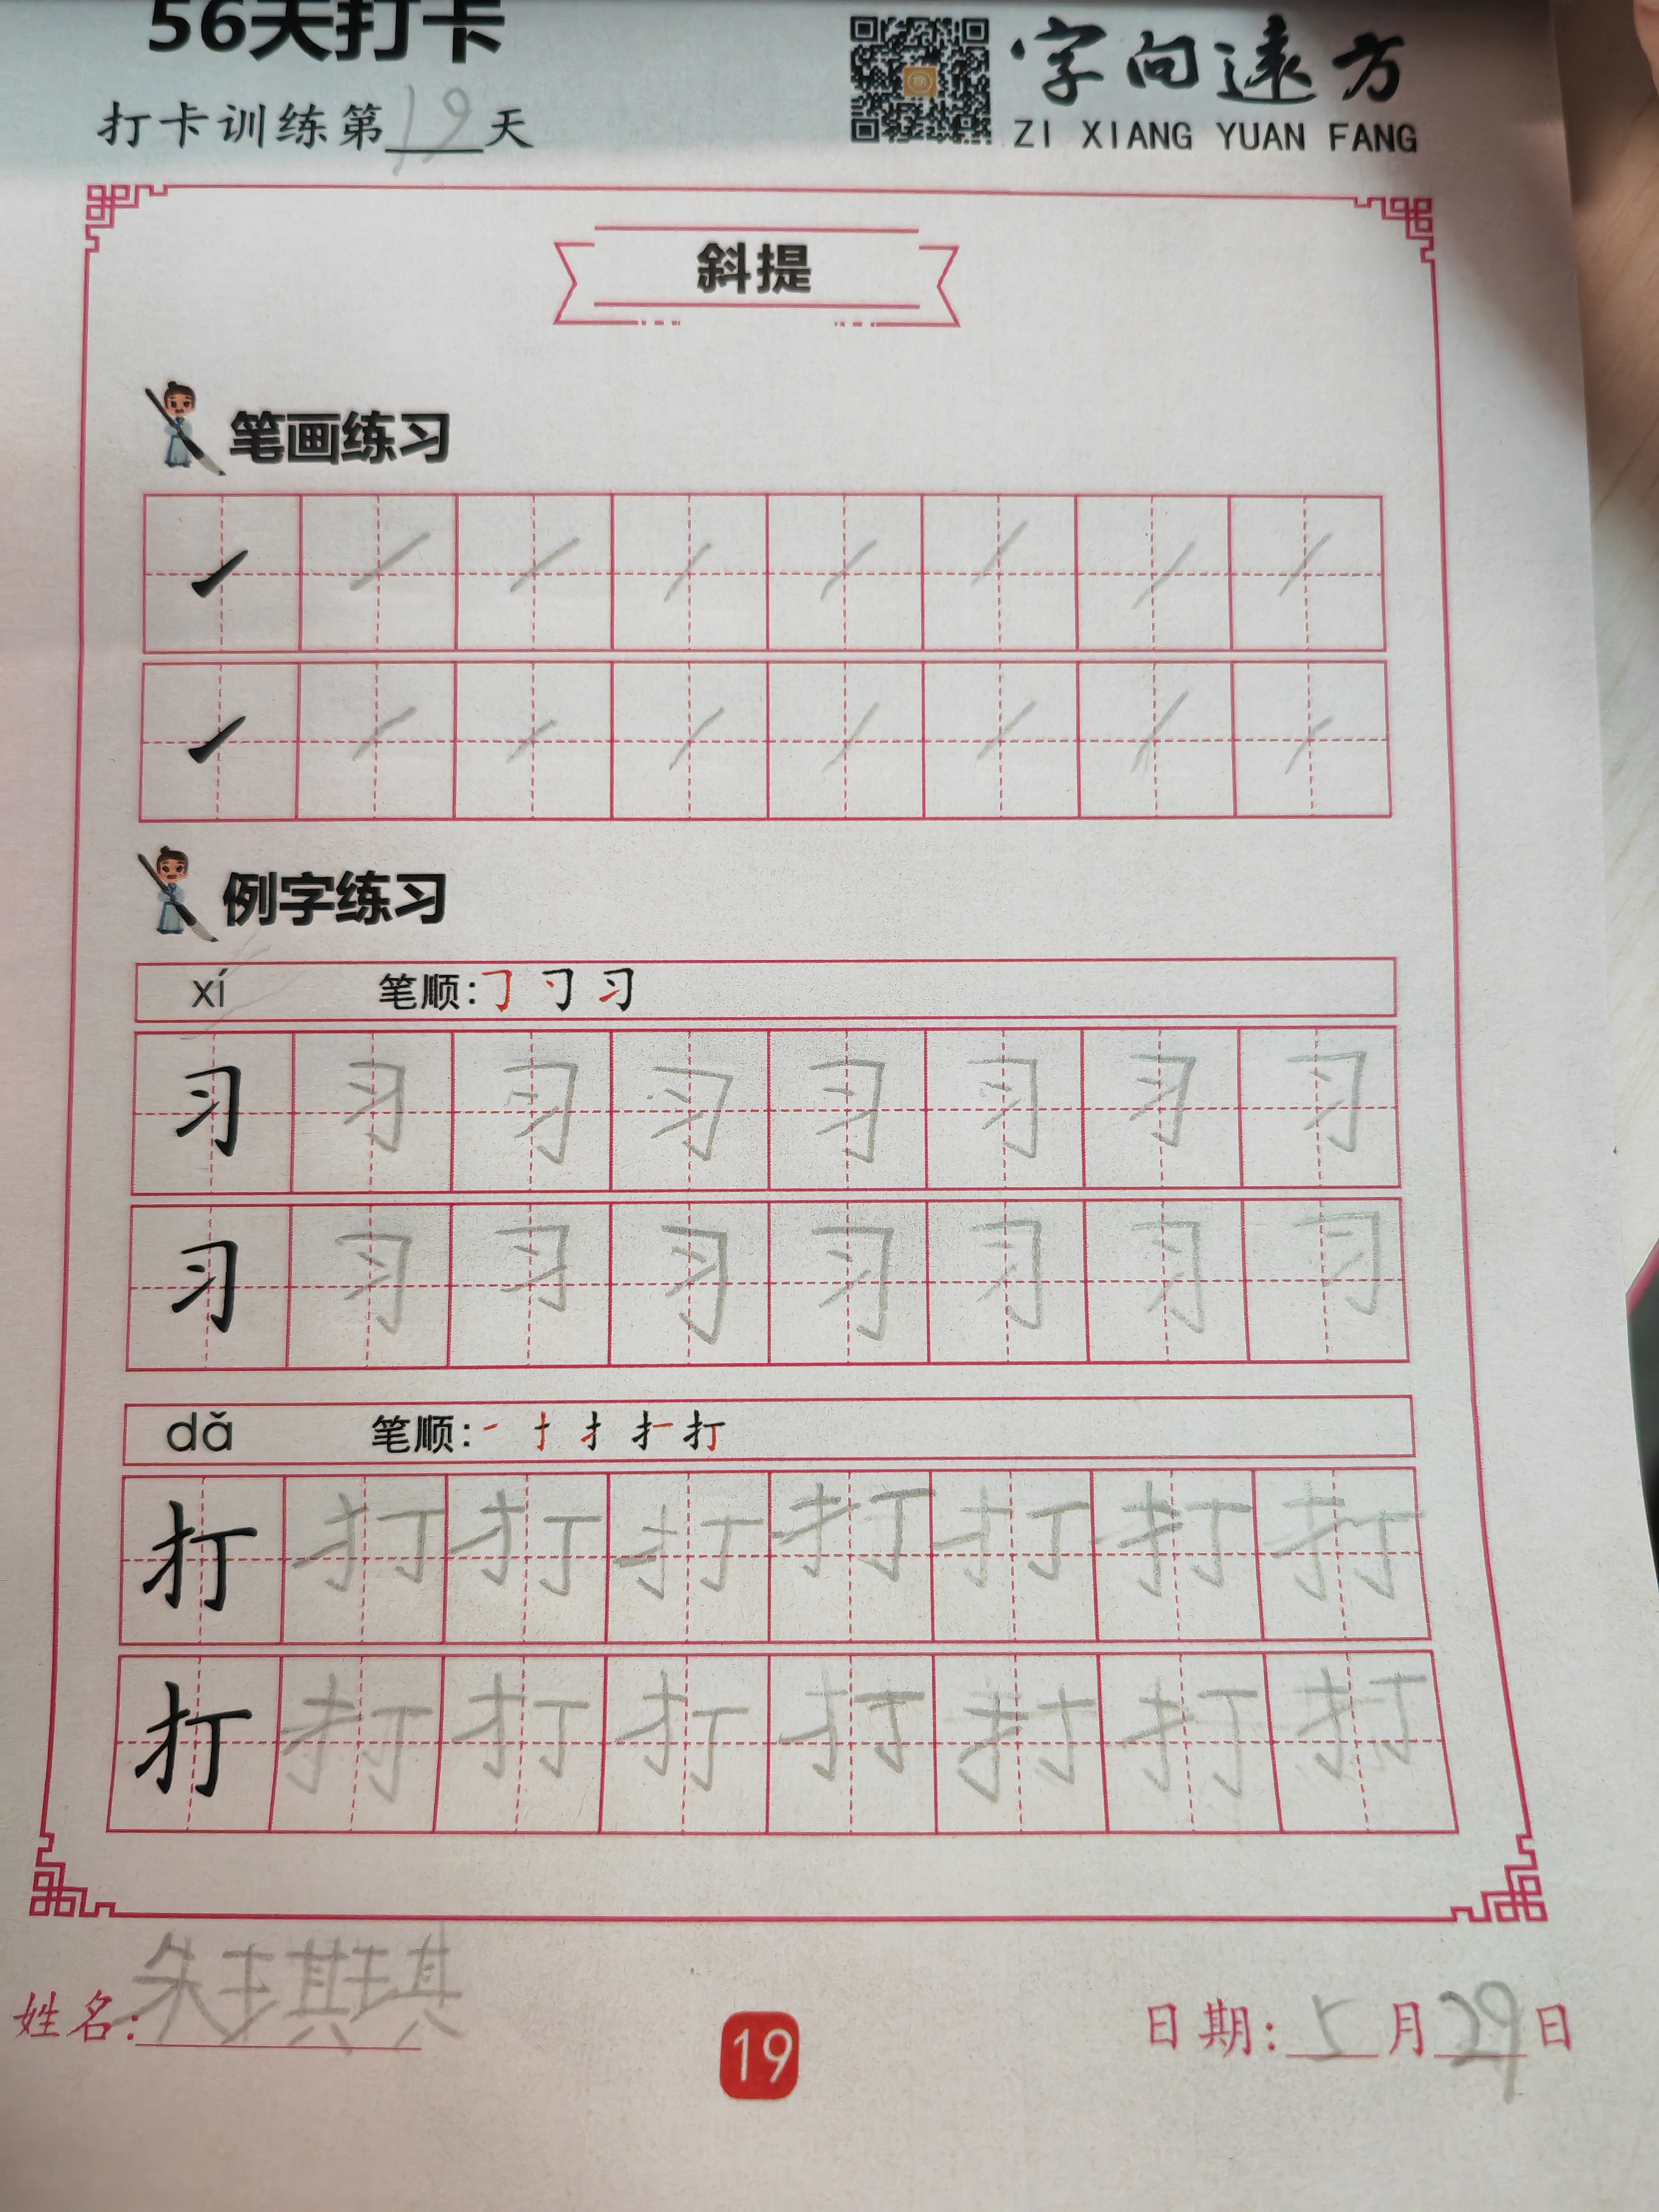 56天打卡
打卡训练第19天
字向远方
ZI XIANG YUAN FANG
斜提
笔画练习
例字练习
xí 笔顺:㇆ 刁 习
习 习 习 习 习 习 习 习
习 习 习 习 习 习 习 习
dǎ 笔顺:一 十 扌 扌一 打
打 打 打 打 打 打 打 打
打 打 打 打 打 打 打 打
姓名:朱琪琪
19
日期:5月29日